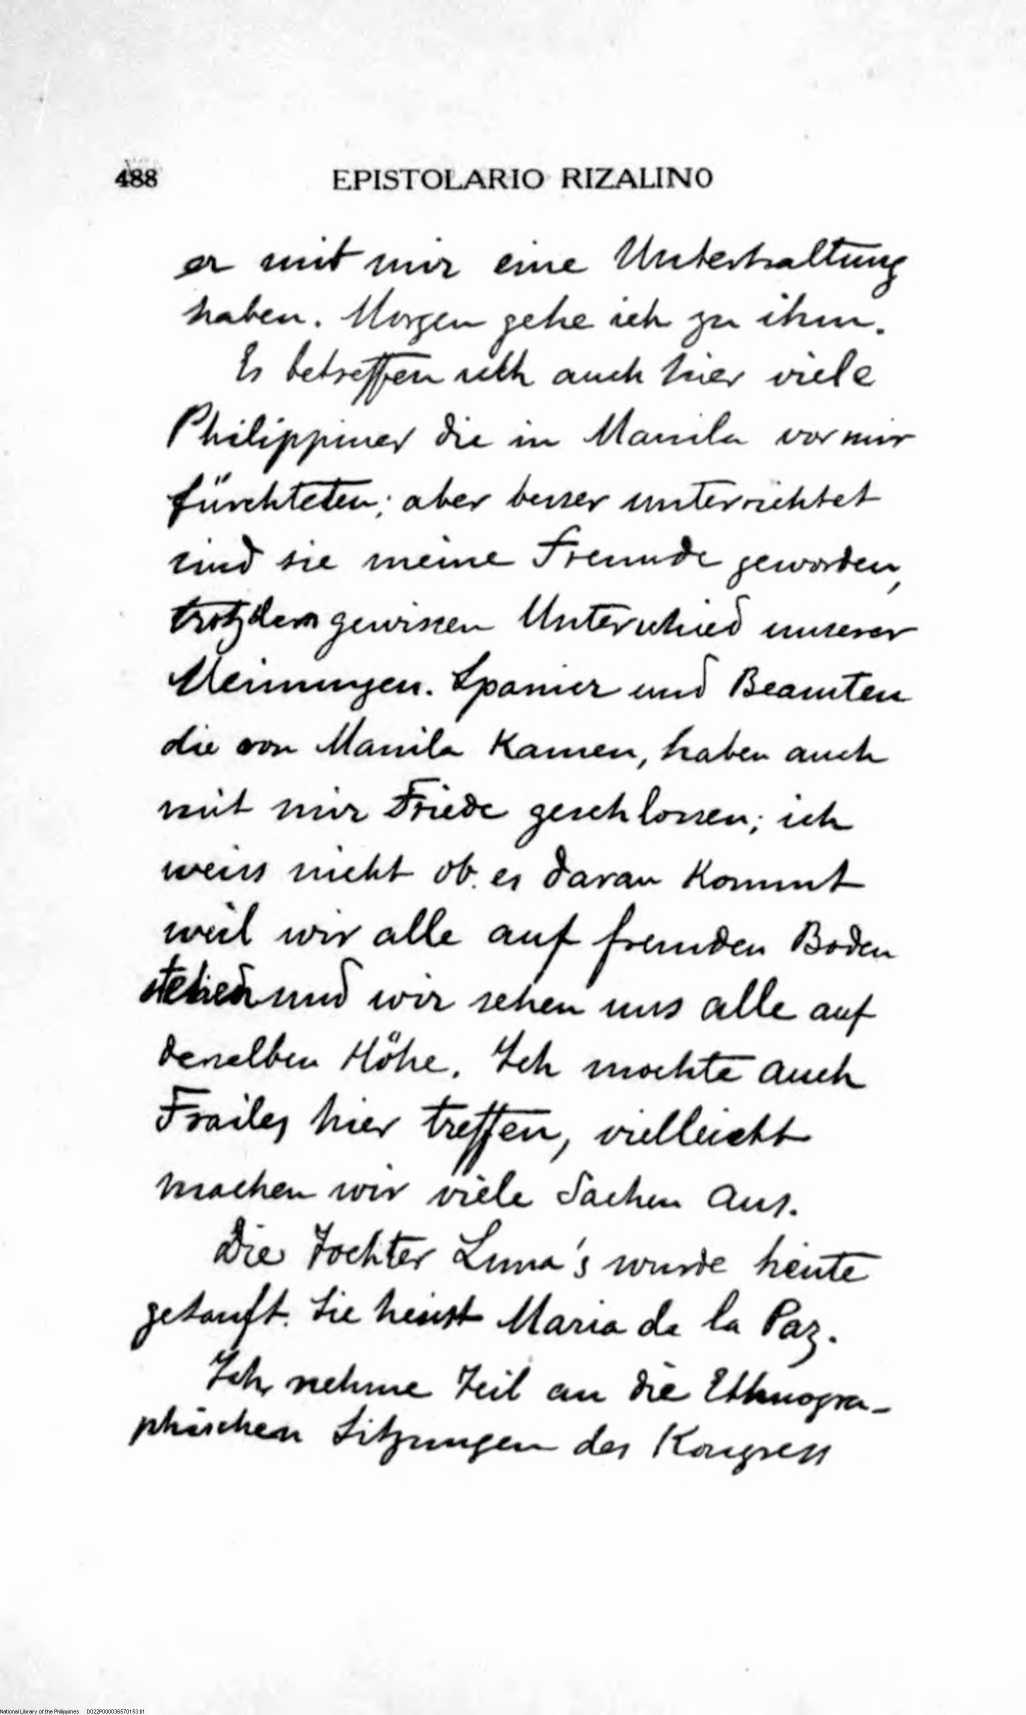 488 EPISTOLARIO RIZALINO
er mit mir eine Unterhaltung
haben. Morgen gehe ich zu ihm.
Es betreffen sich auch hier viele
Philippiner die in Manila vor mir
fürchteten; aber besser unterrichtet
sind sie meine Freunde geworden,
trotz dem gewissen Unterschied unserer
Meinungen. Spanier und Beamten
die von Manila kamen, haben auch
mit mir Friede geschlossen; ich
weiss nicht ob es daran kommt
weil wir alle auf fremden Boden
stehen und wir sehen uns alle auf
derselben Höhe. Ich mochte auch
Frailes hier treffen, vielleicht
machen wir viele Sachen aus.
Die Tochter Luna's wurde heute
getauft. Sie heisst Maria de la Paz.
Ich nehme Teil an die Ethnogra-
phischen Sitzungen des Kongress
National Library of the Philippines